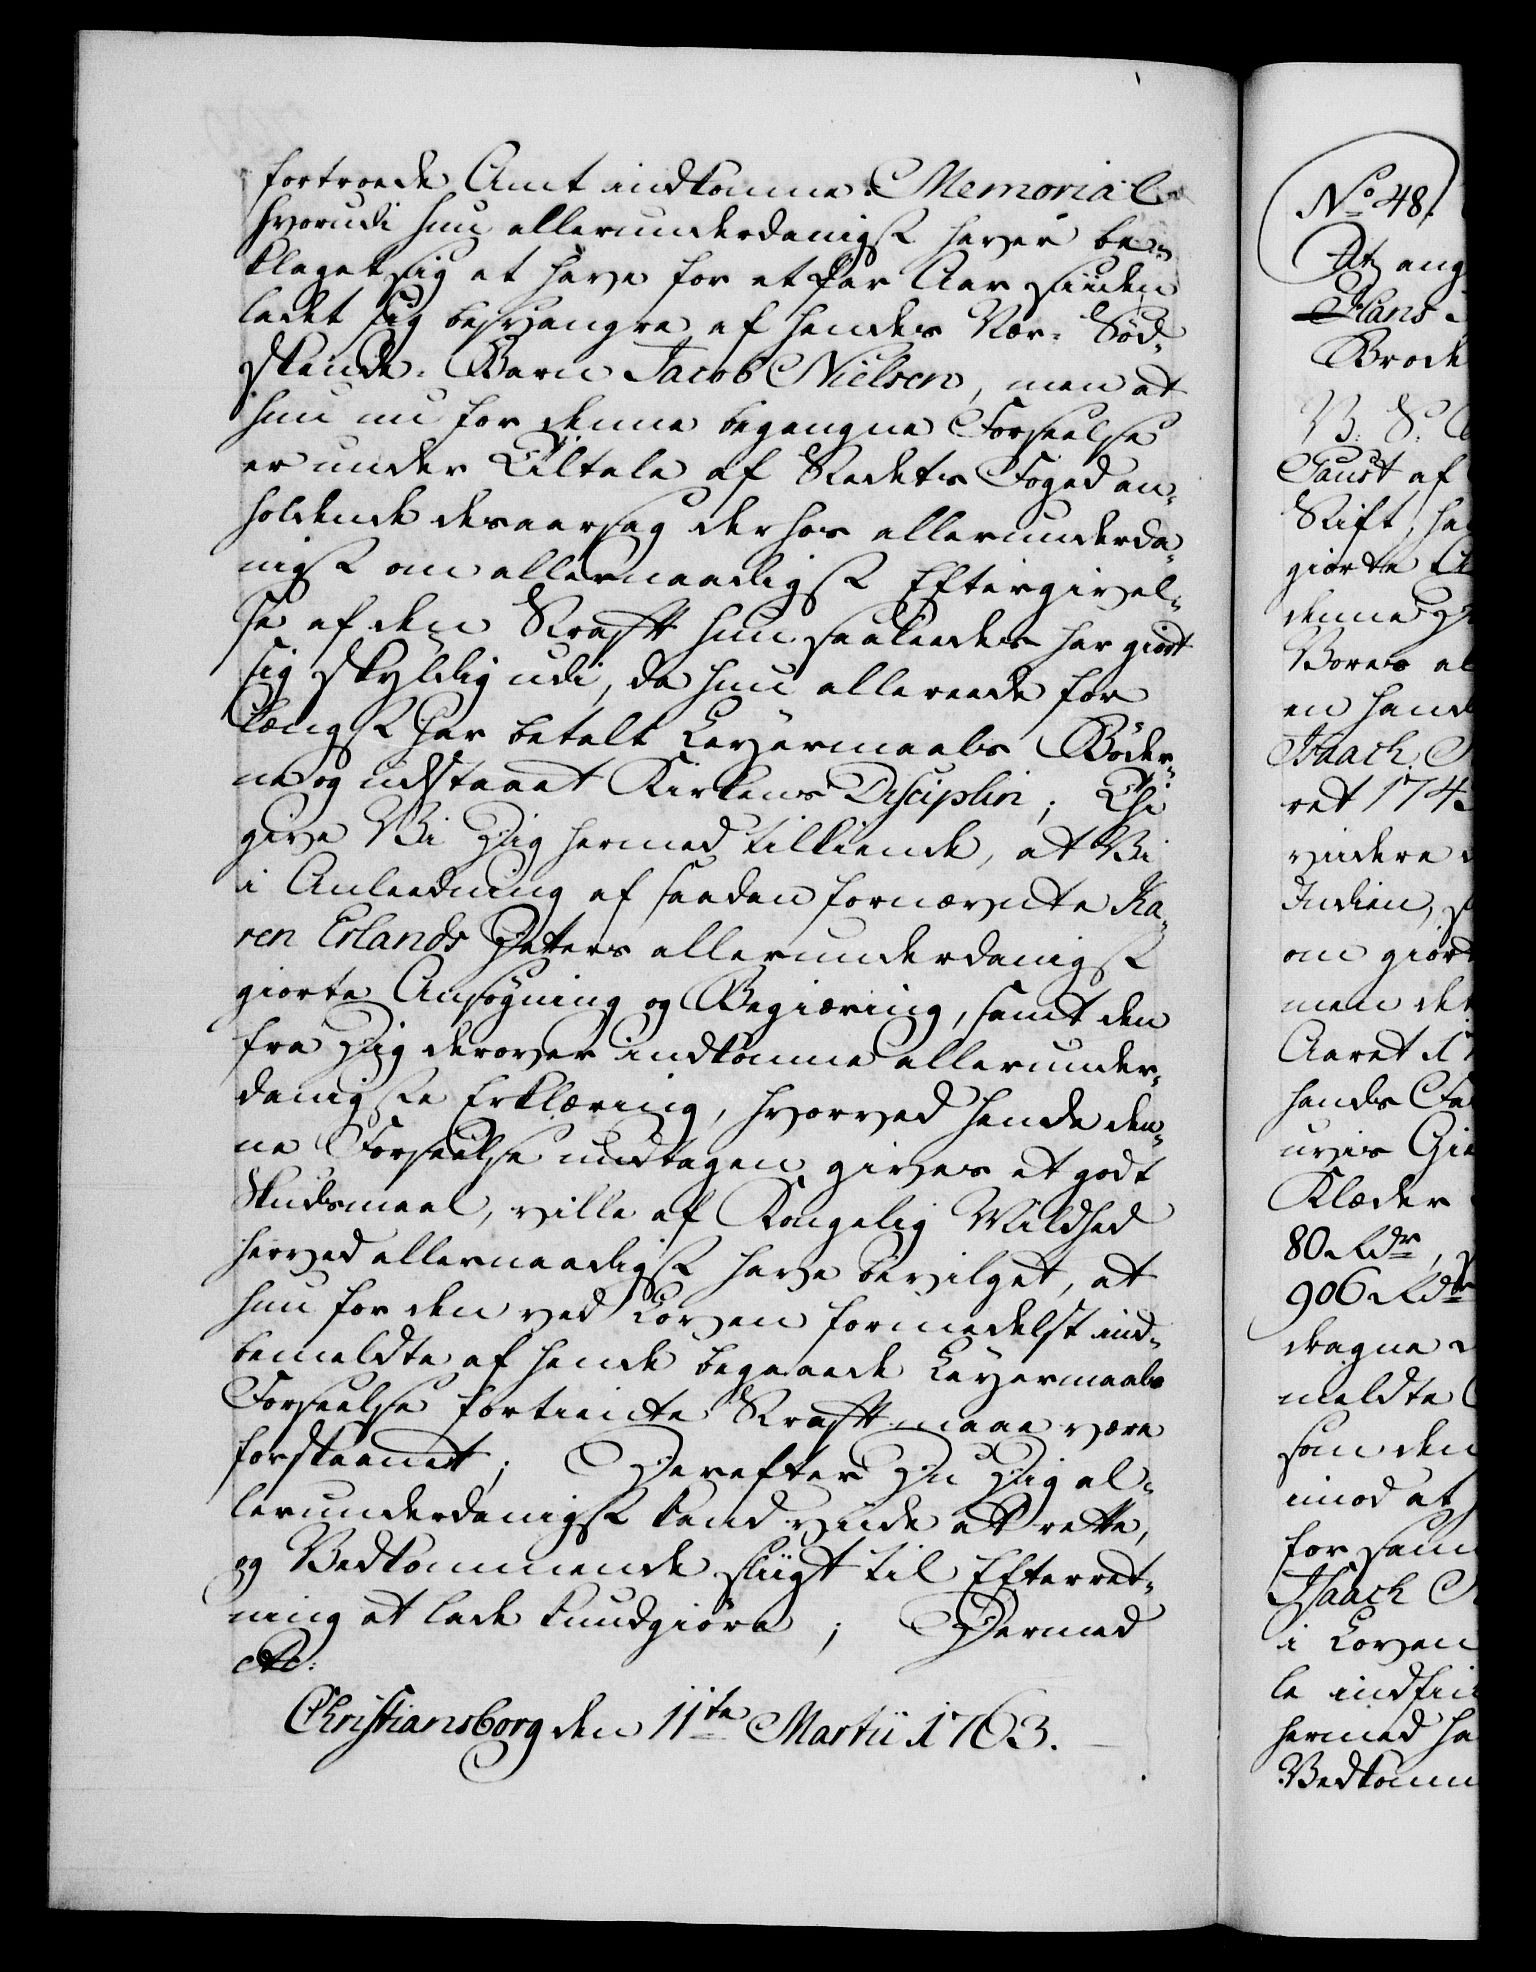 fortroede Amt indkomne Memorial
hvorudi hun allerunderdanigst haver be-
klaget sig at have for et Par Aar siiden
ladet sig besvangre af hendes Nær-Sød-
skende-Barn Jacob Nielsen, men at
hun nu for denne begangne Forseelse
er under Tiltale af Stedets Foged an-
holdende desaarsag derhos allerunderda-
nigst om allernaadigst Eftergivel-
se af den Straff hun saaledes har giort
sig skyldig udi, da hun allereede for
længst har betalt Leyermaals Bøder-
ne og udstaaet Kirkens Disciplin; Thi
give Vi Dig hermed tilkiende, at Vi
i Anleedning af saadan fornævnte Ka-
ren Erlands Datters allerunderdanigst
giorte Ansøgning og Begiæring, samt den
fra Dig derover indkomne allerunder-
danigste Erklæring, hvorved hende den-
ne Forseelse undtagen gives et godt
Skudsmaal, ville af Kongelig Mildhed
herved allernaadigst have bevilget, at
hun for den ved Loven formedelst ind-
bemeldte af hende begaaede Leyermaals
Forseelse fortiente Straff maae være
forskaanet; Derefter Du Dig al-
lerunderdanigst kand viide at rette,
og Vedkommende sligt til Efterret-
ning at lade kundgiøre; Dermed
etc:
Christiansborg den 11te Martii 1763.
No 48.
At ang
Hans
Brode
V. S.
Faust af
Stift, ha
giorde
denne
Vores al
en hand
Isaach
ret 174
viidere
Indien,
om giort
men det
Aaret 17
hands Fa
uvis Gie
Klæder
80 Rdr,
906 Rdr
dragne
meldte
som den
imod at
for sam
Isaach
i Loven
le indfin
hermed ha
Vedkomm